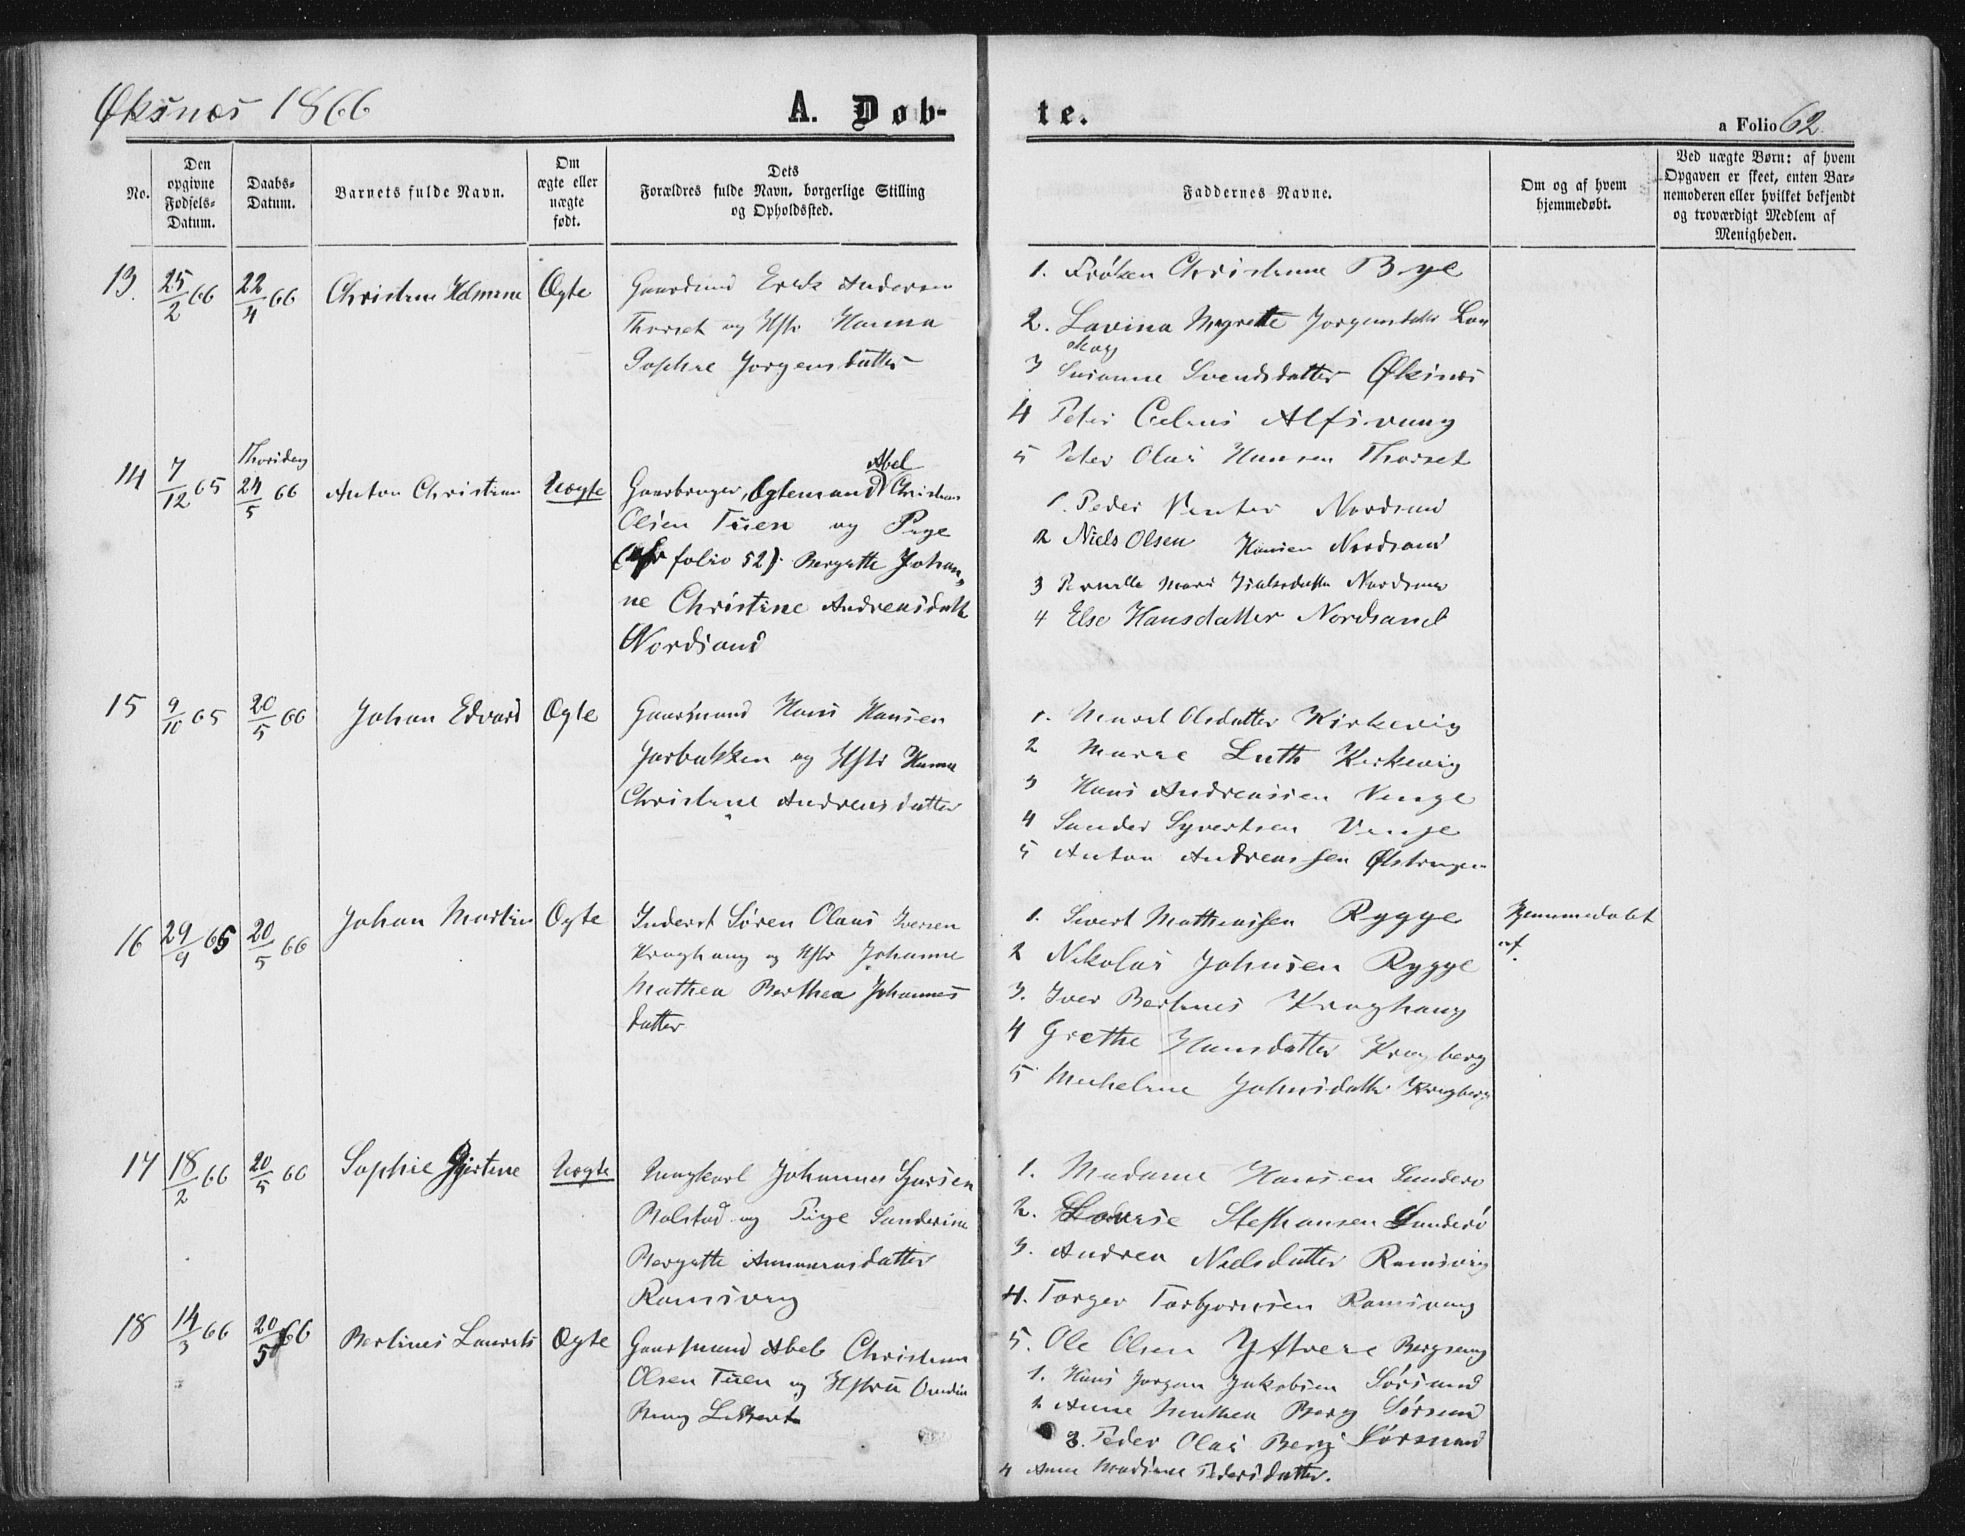 Øksnæs 1866
A. Døb-
te.
a Folio 62.
No.
Den opgivne Fødsels-Datum.
Daabs-Datum.
Barnets fulde Navn.
Om ægte eller uægte født.
Dets
Forældres fulde Navn, borgerlige Stilling
og Opholdssted.
Faddernes Navne.
Om og af hvem
hjemmedøbt.
Ved uægte Børn: af hvem
Opgaven er skeet, enten Bar-
nemoderen eller hvilket bekjendt
og troværdigt Medlem af
Menigheden.
13. 25/2 66 22/4 66 Christine Ægte
Gaardmd Erik Andersen
Thorset og Hstr Hanna
Sophie Jørgensdatter
1. Frøken Christine Bye
2. Lavina Jørgensdatter
3 Susanne Svendsdatter Øksnæs
4 Peter
5 Peter Olai Hansen Thorset
14 7/12 65 24/5 66 Anton Christian Uægte
Abel
Gaardbruger, Ægtemand Christian
Olsen Tuen og Pige
(cfr folio 52). Bergitte Johan-
ne Christine Andreasdatter
Nordsand
1. Peder Nordsand
2 Niels Olsen Hansen Nordsand
3 Nordsand
4 Else Hansdatter Nordsand
15 9/10 65 20/5 66 Johan Edvard Ægte
Gaardmand Hans Hansen
og Hstr Hanna
Christine Andreasdatter
1. Olsdatter Kirkevig
2 Luth Kirkevig
3 Hans Andreassen Vinge
4 Sander Syvertsen Vinje
5 Anton Andreassen
16 29/9 65 20/5 66 Johan Martin Ægte
Inderst Søren Olaus Iversen
Kroghaug og Hstr Johanne
Mathea Berthea Johannes
datter
1. Sivert Mathiassen Rygge
2 Nikolai Johnsen Rygge
3. Iver Bertines Kroghaug
4 Grethe Hansdatter Krogberg
5 Micheline Johnsdatter Krogberg
Hjemmedøbt
17 18/2 66 20/5 66 Sophie Uægte
Ungkarl Johannes
Rolstad og Pige Sanderine
Bergitte
Ramsvig
1. Madame Hansen Sanderø
2. Lovise Stephansen Sunderø
3. Andrea Nielsdatter Ramsvig
4. Torger Torbjørnsen
5. Ole Olsen
18 14/3 66 20/5 66 Bertines Laurits Ægte
Gaardmand Abel Christian
Olsen Tuen og Hstru
Berg
1. Hans Jørgen Jakobsen Sørsand
2 Anne Mathea Berg Sørsand
3. Peder Olai Berg Sørsand
4 Anne Pedersdatter.